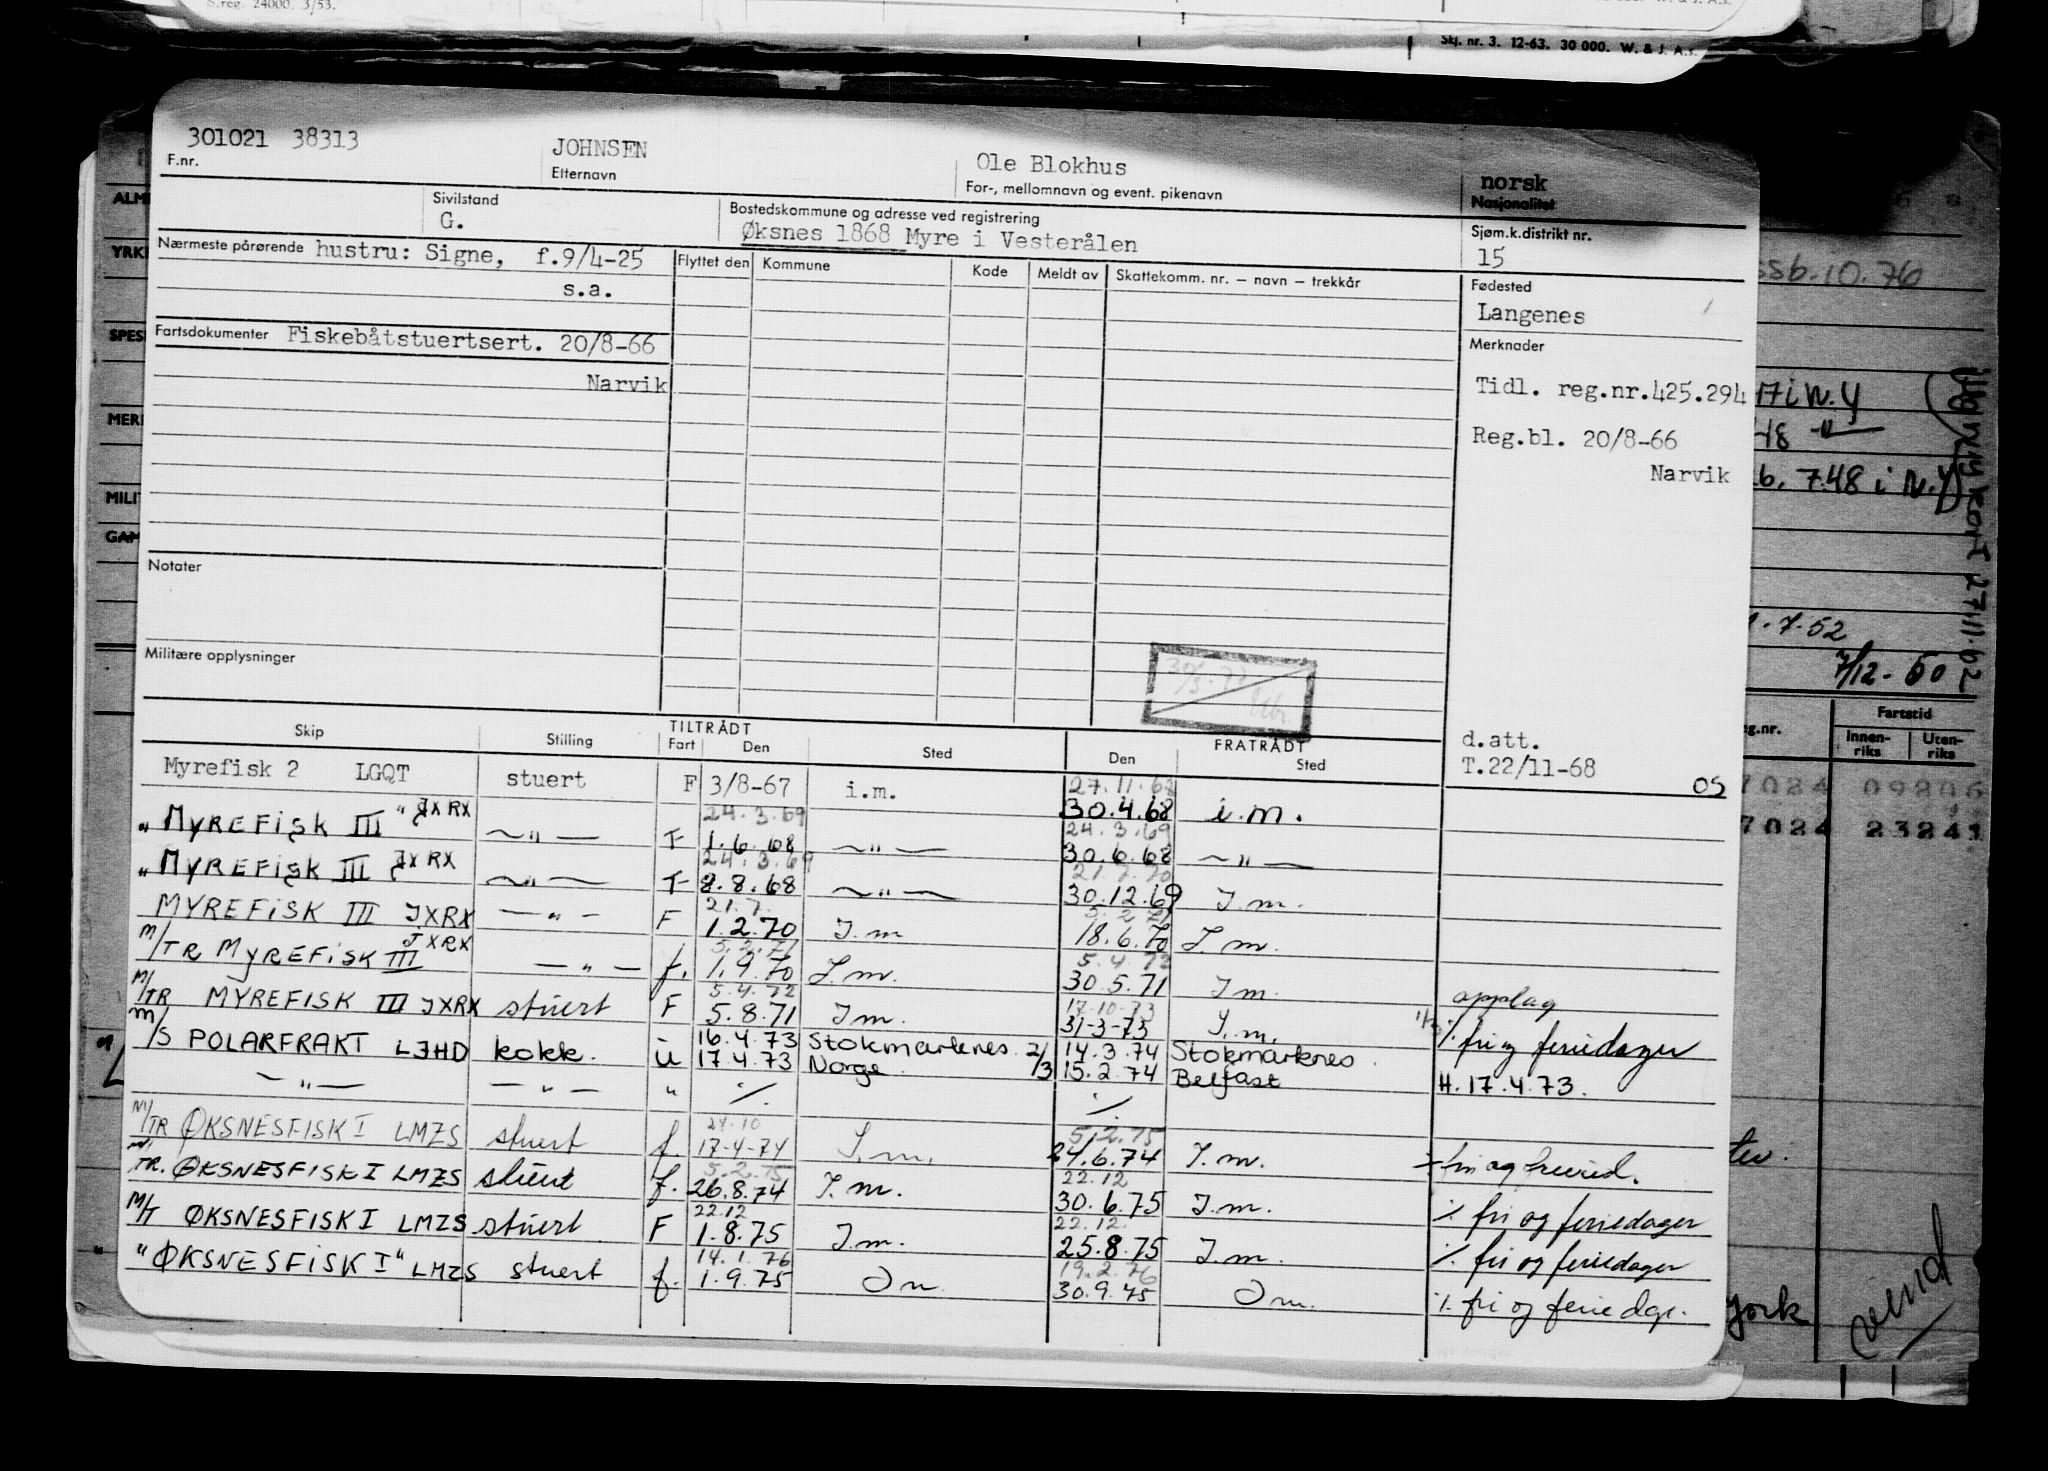 S.reg. 24000. 3/53.
Skj. nr. 3. 12-63. 30 000. W. & J. A.s.
301021 38313 JOHNSEN Ole Blokhus norsk
F.nr. Etternavn For-, mellomnavn og event. pikenavn Nasjonalitet
Sivilstand Bostedskommune og adresse ved registrering Sjøm.k.distrikt nr.
G. Øksnes 1868 Myre i Vesterålen 15
Nærmeste pårørende hustru: Signe, f.9/4-25 Flyttet den Kommune Kode Meldt av Skattekomm. nr. – navn – trekkår Fødested
s.a. Langenes
Fartsdokumenter Fiskebåtstuertsert. 20/8-66 Merknader
Narvik Tidl. reg.nr.425.294
Reg.bl. 20/8-66
Narvik
Notater
Militære opplysninger
Skip Stilling TILTRÅDT Fart Den Sted FRATRÅDT Den Sted d.att.
T.22/11-68
OS
Myrefisk 2 LGQT stuert F 3/8-67 i.m. 27.11.68 30.4.68 i.m.
"MYREFISK III" JXRX —"— F 24.3.69 1.6.68 —"— 24.3.69 30.6.68 —"—
"MYREFISK III JXRX —"— F 24.3.69 2.8.68 —"— 21.7.70 30.12.69 I.m.
MYREFISK III JXRX —"— F 21.7. 1.2.70 I.m 5.2.71 18.6.70 I.m.
M/TR MYREFISK III JXRX —"— f. 5.2.71 1.9.70 I.m. 5.4.72 30.5.71 I m. opplag
M/TR MYREFISK III JXRX stuert F 5.4.72 5.8.71 I m. 17.10.73 31-3-73 I.m. ./. fri og feriedager
M/S POLARFRAKT LJHD kokk. - 16.4.73 Stokmarknes 2/3 14.3.74 Stokmarknes
u 17.4.73 Norge 15.2.74 Belfast H. 17.4.73.
—"— —"— " ./. ./.
M/TR ØKSNESFISK I LMZS stuert f. 24.10 17-4-74 I.m. 5.2.75 24.6.74 I.m.
TR. ØKSNESFISK I LMZS stuert f. 5.2.75 26.8.74 I.m. 22.12 30.6.75 I.m. ./. fri og feriedager
M/T ØKSNESFISK I LMZS stuert F 22.12 1.8.75 I.m. 22.12. 25.8.75 I.m. ./. fri og feriedager
"ØKSNESFISK I" LMZS stuert f. 14.1.76 1.9.75 I m. 19.2.76 30.9.75 I m. ./. fri og ferie dgr.
ALM
YRK
SPES
MER
MILIT
GAM
10.76
17 i N.Y
48 —"—
7.48 i N.Y
Ny kort 27.11.62
7.52
7/12-50
g.nr. Fartstid
Innenriks Utenriks
7024 09806
7024 23241
York
vend